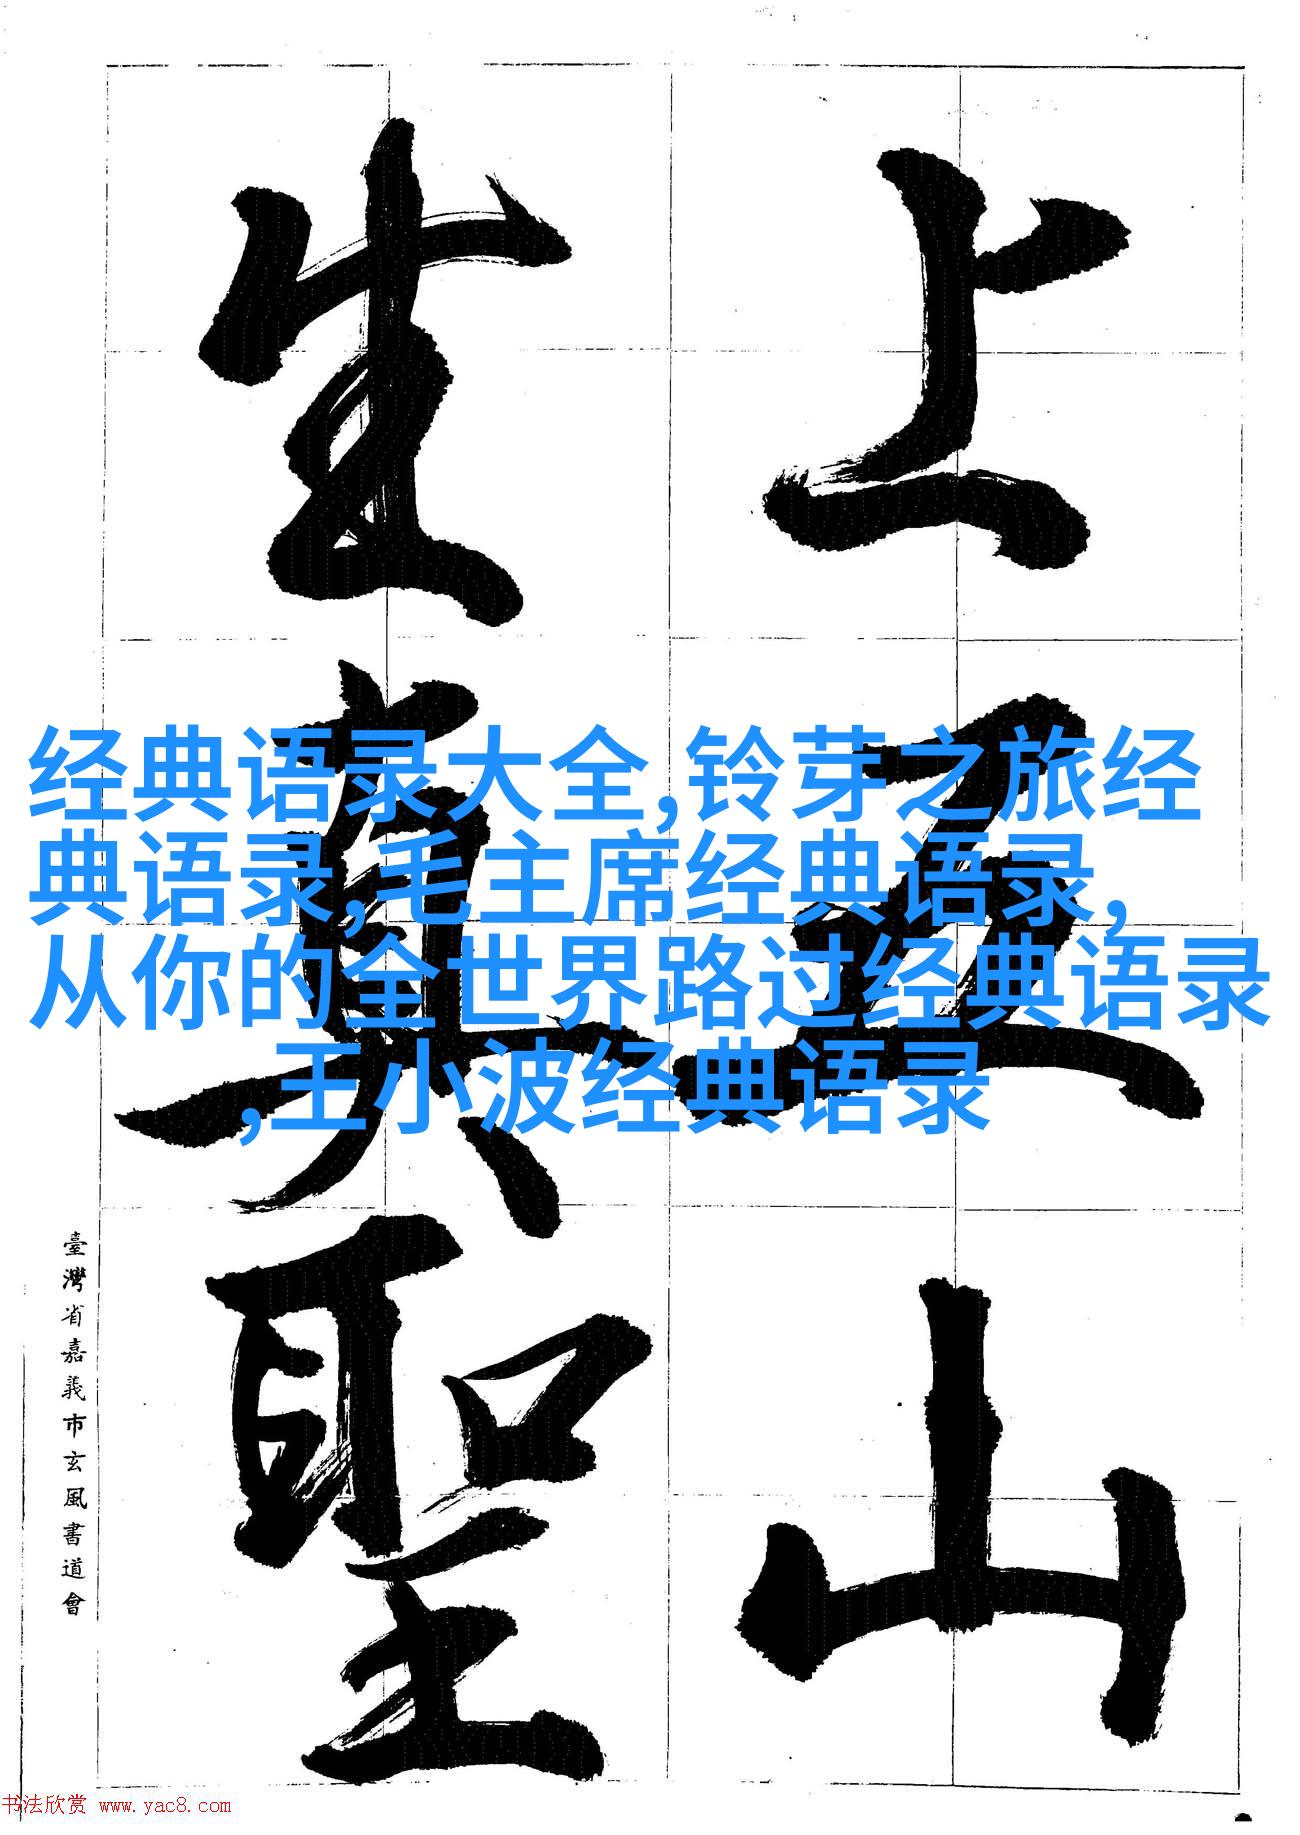 上五山
生真聖
经典语录大全,铃芽之旅经
典语录,毛主席经典语录,
从你的全世界路过经典语录
,王小波经典语录
臺灣省嘉義市玄風書道會
书法欣赏 www.yac8.com